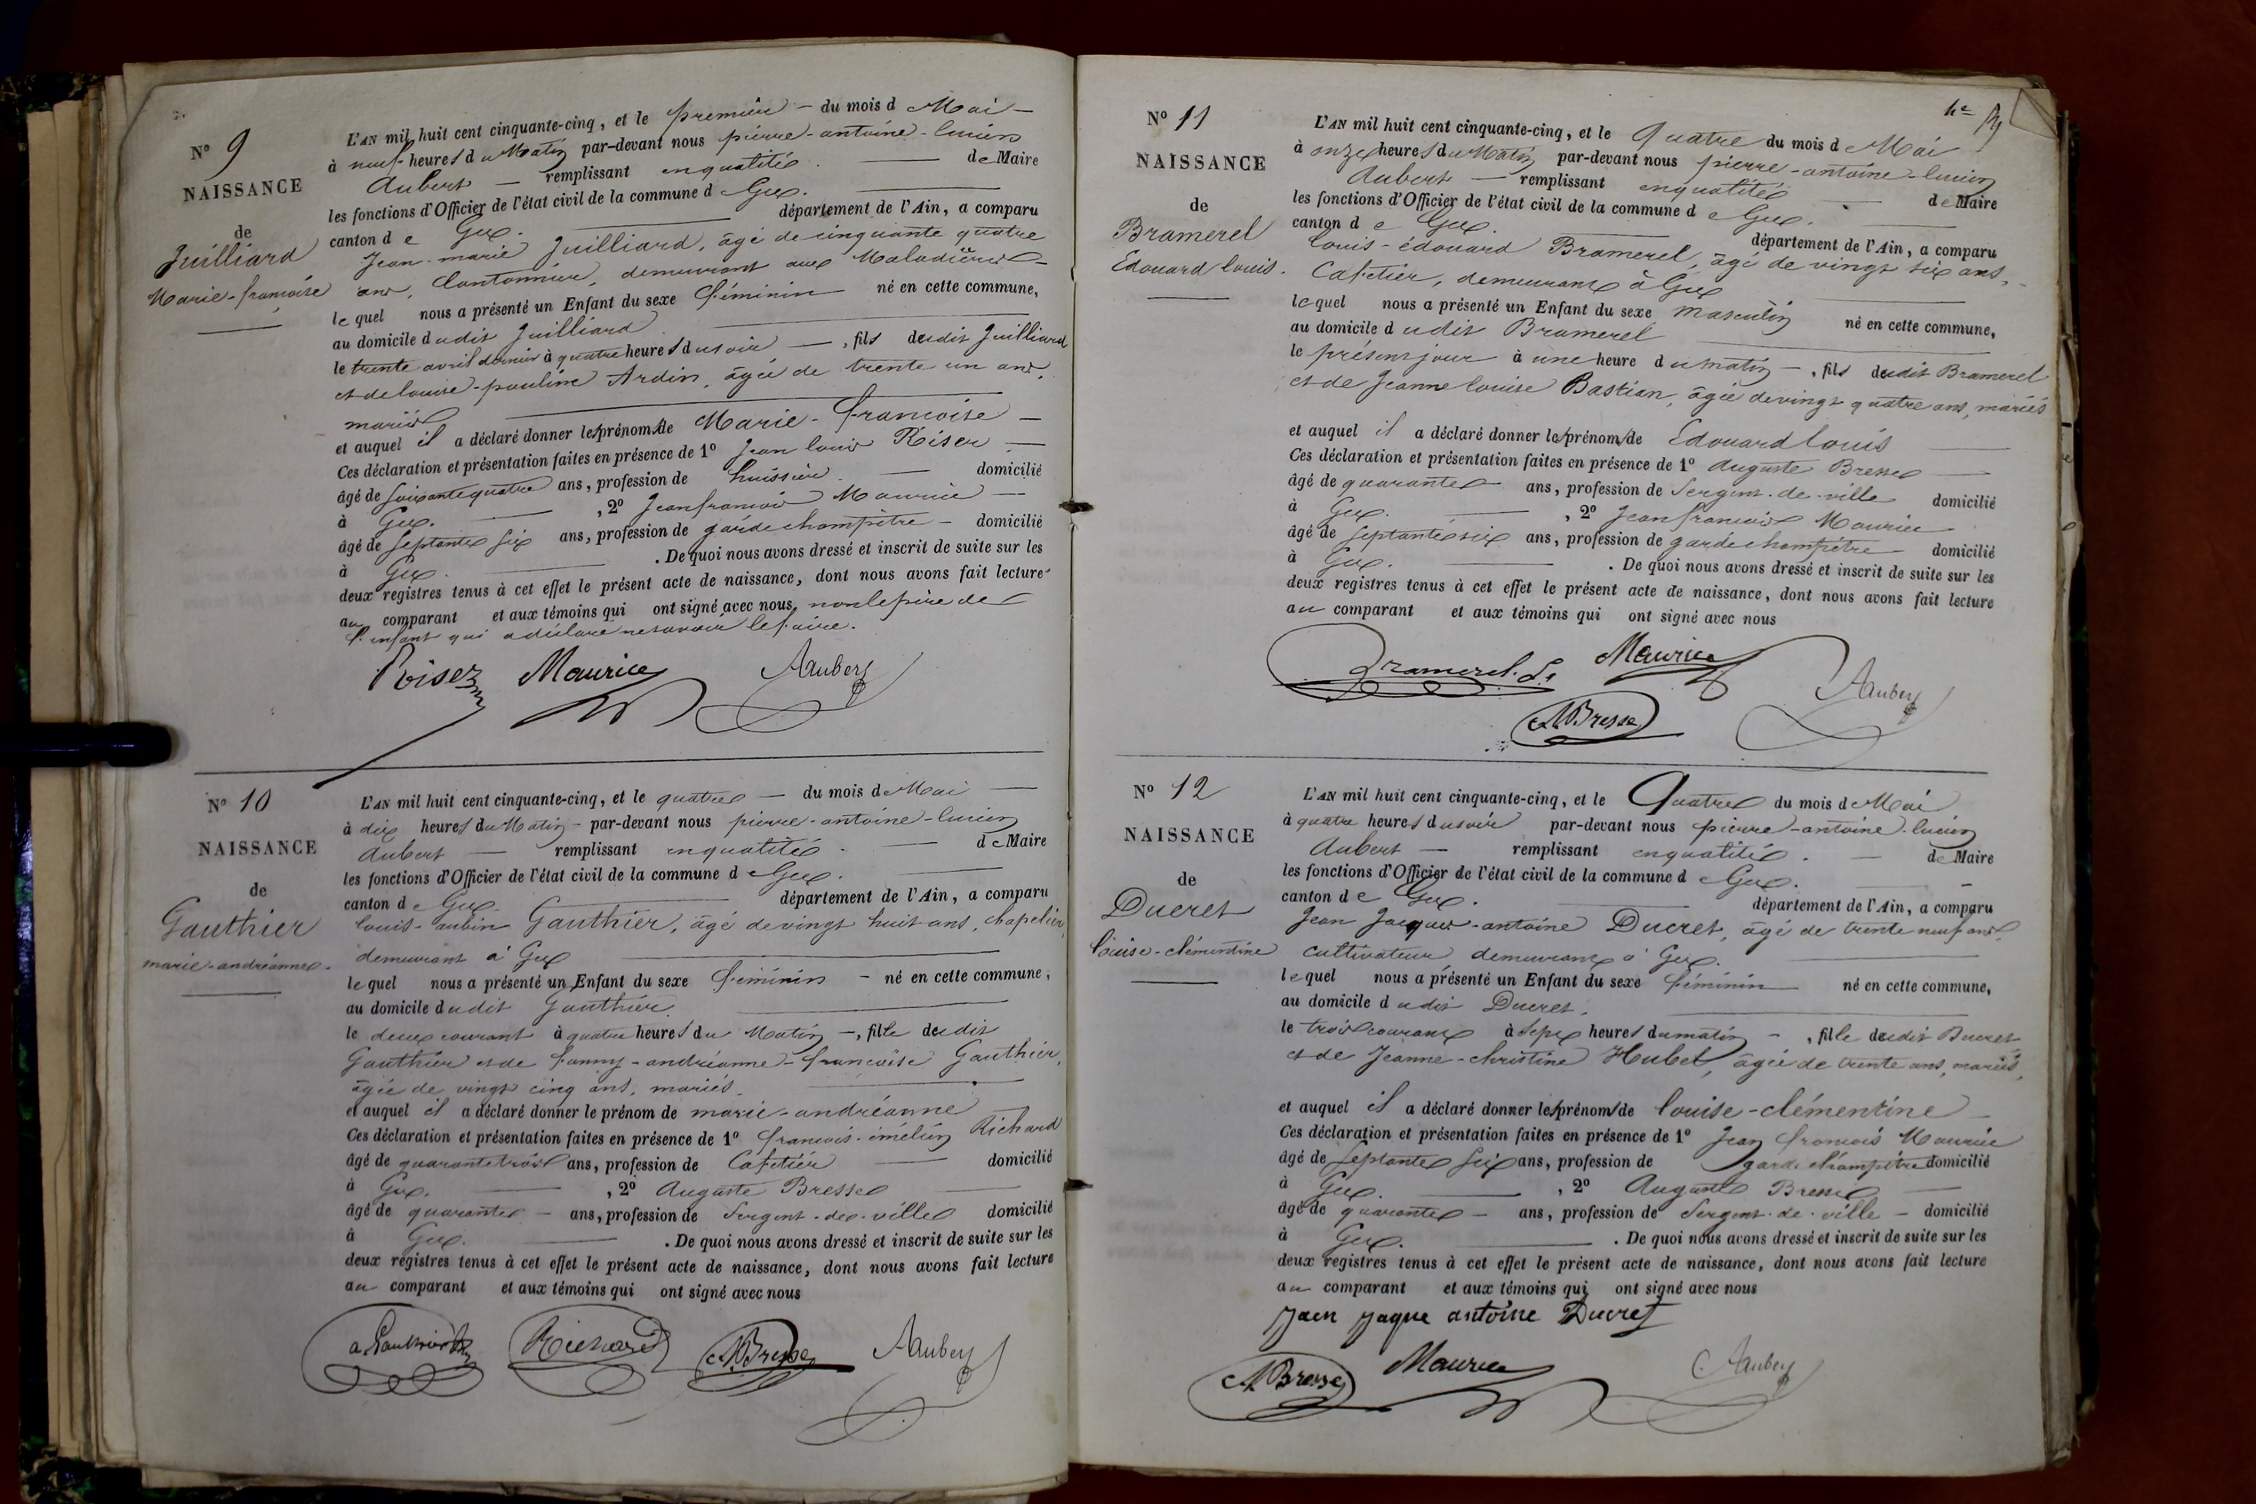 N° 9
NAISSANCE
de
Juilliard
Marie-françoise
L'AN mil huit cent cinquante-cinq, et le premier du mois de Mai
à neuf heures du Matin par-devant nous pierre-antoine-lucien
Aubert remplissant en qualité de Maire
les fonctions d'Officier de l'état civil de la commune de Gex.
canton de Gex. département de l'Ain, a comparu
Jean-marie Juilliard, âgé de cinquante quatre
ans, Cantonnier, demeurant aux Maladières
lequel nous a présenté un Enfant du sexe féminin né en cette commune,
au domicile dudit Juilliard
le trente avril dernier à quatre heures du soir, fils dudit Juilliard
et de louise-pauline Ardin, âgée de trente un ans,
mariés
et auquel il a déclaré donner les prénoms de Marie-francoise
Ces déclaration et présentation faites en présence de 1° Jean louis Roiser
âgé de soixante quatre ans, profession de huissier domicilié
à Gex. , 2° Jean francois Maurice
âgé de septante six ans, profession de garde champêtre domicilié
à Gex. . De quoi nous avons dressé et inscrit de suite sur les
deux registres tenus à cet effet le présent acte de naissance, dont nous avons fait lecture
au comparant et aux témoins qui ont signé avec nous, non le père de
l'enfant qui a déclaré ne savoir le faire.
Roiser Maurice Aubert
N° 10
NAISSANCE
de
Gauthier
marie-andréanne
L'AN mil huit cent cinquante-cinq, et le quatre du mois de Mai
à dix heures du Matin par-devant nous pierre-antoine-lucien
Aubert remplissant en qualité de Maire
les fonctions d'Officier de l'état civil de la commune de Gex.
canton de Gex. département de l'Ain, a comparu
louis-aubin Gauthier, âgé de vingt huit ans, chapelier,
demeurant à Gex
lequel nous a présenté un Enfant du sexe féminin né en cette commune,
au domicile dudit Gauthier.
le deux courant à quatre heures du Matin, fille dudit
Gauthier et de fanny-andréanne-francoise Gauthier,
âgée de vingt cinq ans, mariés.
et auquel il a déclaré donner le prénom de marie-andréanne
Ces déclaration et présentation faites en présence de 1° francois-émélien Richard
âgé de quarante trois ans, profession de Cafetier domicilié
à Gex. , 2° Auguste Bresse
âgé de quarante ans, profession de Sergent-de-ville domicilié
à Gex. . De quoi nous avons dressé et inscrit de suite sur les
deux registres tenus à cet effet le présent acte de naissance, dont nous avons fait lecture
au comparant et aux témoins qui ont signé avec nous
a. Gauthier Richard A Bresse Aubert
N° 11
NAISSANCE
de
Bramerel
Edouard louis.
L'AN mil huit cent cinquante-cinq, et le Quatre du mois de Mai
à onze heures du Matin par-devant nous pierre-antoine-lucien
Aubert remplissant en qualité de Maire
les fonctions d'Officier de l'état civil de la commune de Gex.
canton de Gex. département de l'Ain, a comparu
louis-édouard Bramerel, âgé de vingt six ans,
Cafetier, demeurant à Gex
lequel nous a présenté un Enfant du sexe masculin né en cette commune,
au domicile dudit Bramerel
le présent jour à une heure du matin, fils dudit Bramerel
et de Jeanne louise Bastian, âgée de vingt quatre ans, mariés
et auquel il a déclaré donner les prénoms de Edouard louis
Ces déclaration et présentation faites en présence de 1° Auguste Bresse
âgé de quarante ans, profession de Sergent-de-ville domicilié
à Gex. , 2° Jean francois Maurice
âgé de septante six ans, profession de garde champêtre domicilié
à Gex. . De quoi nous avons dressé et inscrit de suite sur les
deux registres tenus à cet effet le présent acte de naissance, dont nous avons fait lecture
au comparant et aux témoins qui ont signé avec nous
Bramerel. Ls Maurice Aubert
A Bresse
N° 12
NAISSANCE
de
Ducret
louise-clémentine
L'AN mil huit cent cinquante-cinq, et le Quatre du mois de Mai
à quatre heures du soir par-devant nous pierre-antoine-lucien
Aubert remplissant en qualité de Maire
les fonctions d'Officier de l'état civil de la commune de Gex.
canton de Gex. département de l'Ain, a comparu
Jean Jacques-antoine Ducret, âgé de trente neuf ans,
cultivateur demeurant à Gex.
lequel nous a présenté un Enfant du sexe féminin né en cette commune,
au domicile dudit Ducret.
le trois courant à sept heures du matin, fille dudit Ducret
et de Jeanne-christine Hubel, âgée de trente ans, mariés,
et auquel il a déclaré donner les prénoms de louise-clémentine
Ces déclaration et présentation faites en présence de 1° Jean francois Maurice
âgé de septante six ans, profession de garde champêtre domicilié
à Gex. , 2° Auguste Bresse
âgé de quarante ans, profession de Sergent-de-ville domicilié
à Gex. . De quoi nous avons dressé et inscrit de suite sur les
deux registres tenus à cet effet le présent acte de naissance, dont nous avons fait lecture
au comparant et aux témoins qui ont signé avec nous
Jaen Jaque antoine Ducret
A Bresse Maurice Aubert